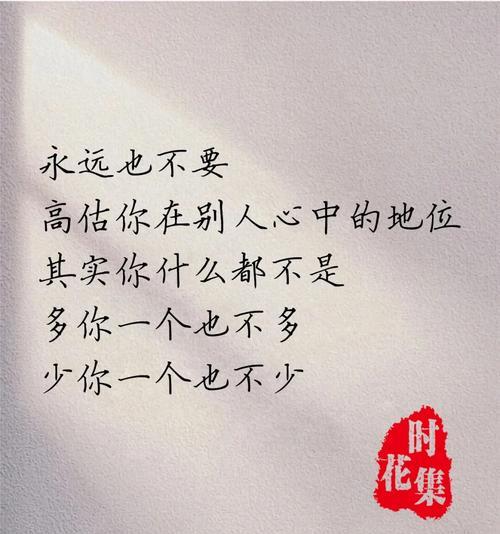 永远也不要
高估你在别人心中的地位
其实你什么都不是
多你一个也不多
少你一个也不少
时花集